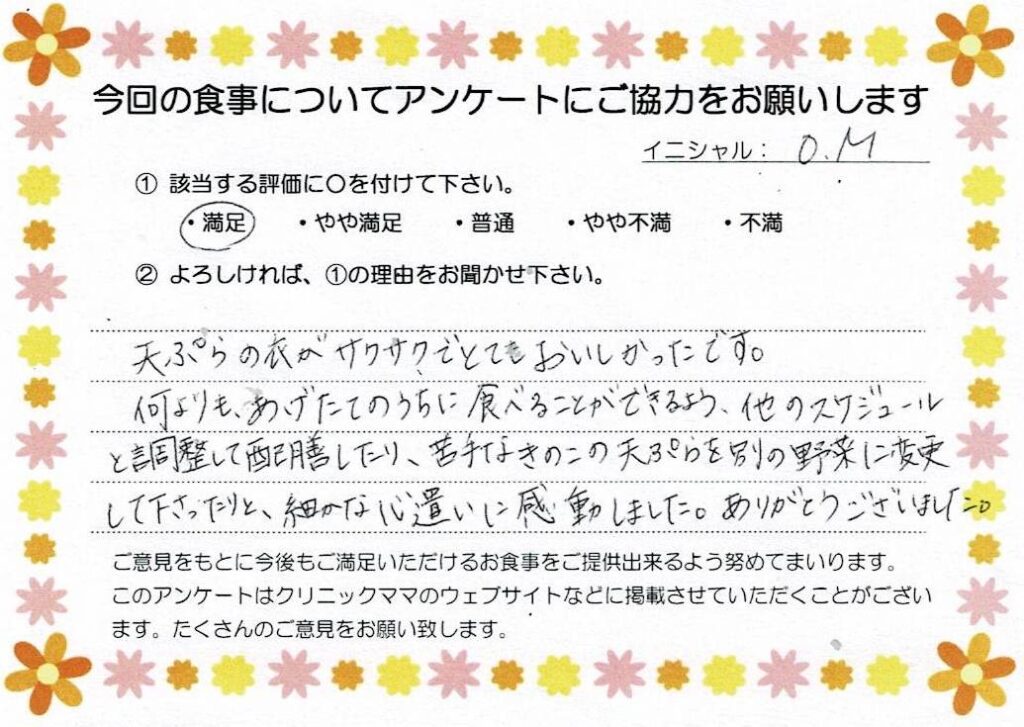 今回の食事についてアンケートにご協力をお願いします
イニシャル： O.M
① 該当する評価に〇を付けて下さい。
・満足 ・やや満足 ・普通 ・やや不満 ・不満
② よろしければ、①の理由をお聞かせ下さい。
天ぷらの衣がサクサクでとてもおいしかったです。
何よりも、あげたてのうちに食べることができるよう、他のスケジュール
と調整して配膳したり、苦手なきのこの天ぷらを別の野菜に変更
して下さったりと、細かな心遣いに感動しました。ありがとうございました。
ご意見をもとに今後もご満足いただけるお食事をご提供出来るよう努めてまいります。
このアンケートはクリニックママのウェブサイトなどに掲載させていただくことがござい
ます。たくさんのご意見をお願い致します。